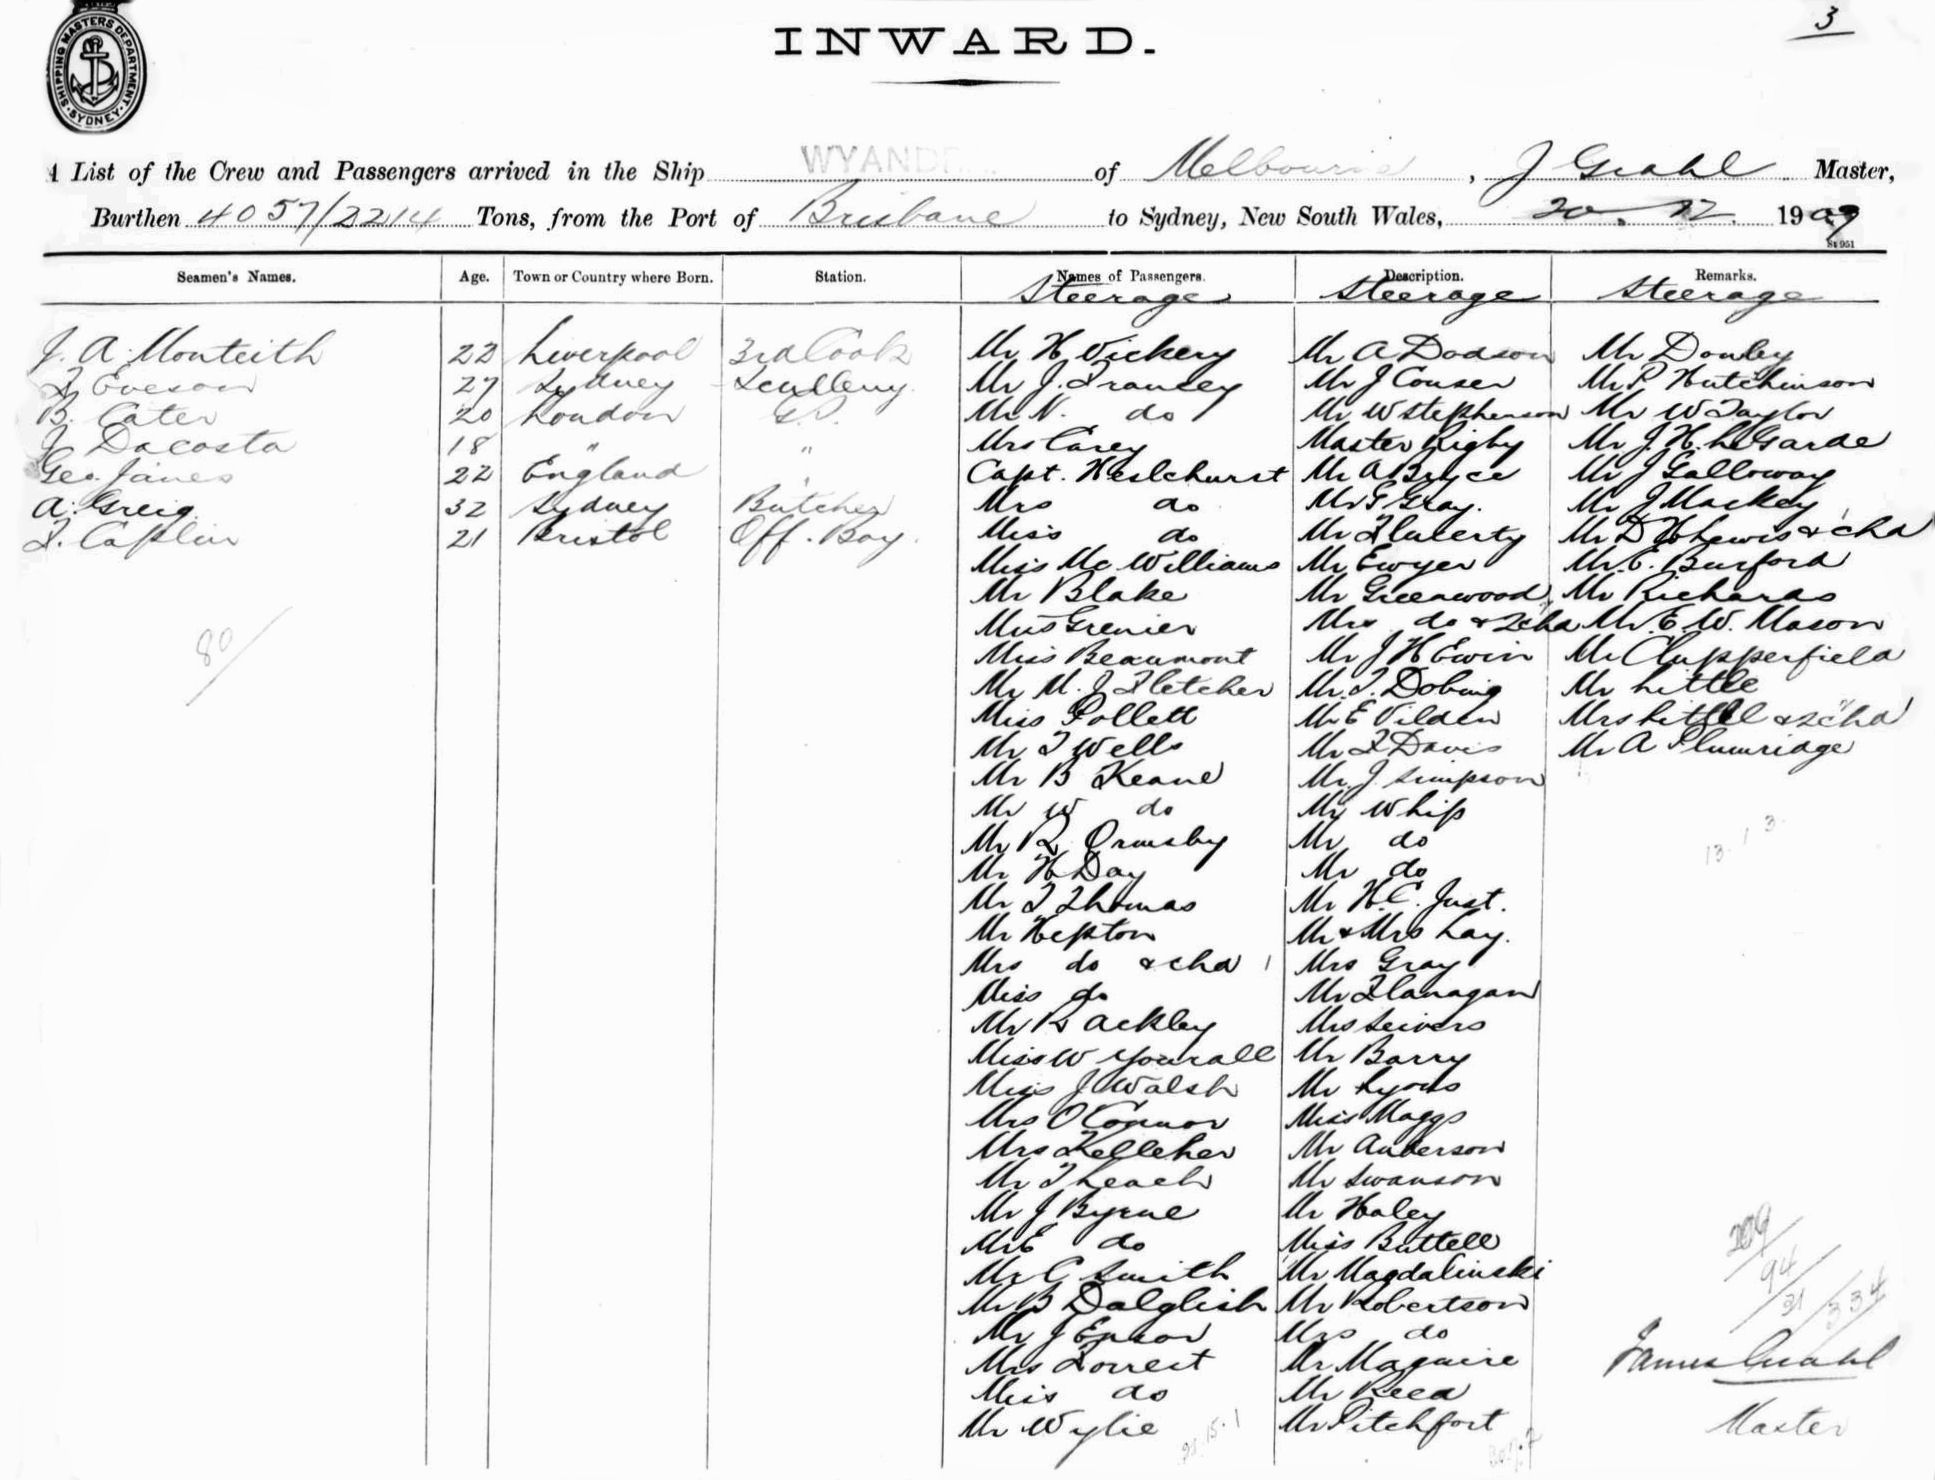 3
SHIPPING MASTERS DEPARTMENT. SYDNEY
INWARD.
List of the Crew and Passengers arrived in the Ship WYAND of Melbourne, J Grahl Master,
Burthen 4057/2214 Tons, from the Port of Brisbane to Sydney, New South Wales, 20. 12. 1909
St 951
Seamen's Names. Age. Town or Country where Born. Station. Names of Passengers. Description. Remarks.
Steerage Steerage Steerage
J. A. Monteith 22 Liverpool 3rd Cook Mr H Vickery Mr A Dodson Mr Donley
Eveson 27 Sydney Scullery. Mr J. Francey Mr J Couser Mr P Hutchinson
B. Cater 20 London G.P. Mr N. do Mr W Stephenson Mr W Taylor
J. Dacosta 18 " " Mrs Carey Master Rigby Mr J. H. LeGarde
Geo. Janes 22 England " Capt. Heslehurst Mr A Bryce Mr J Galloway
A. Greig 32 Sydney Butcher Mrs do Mr G Gray. Mr J Mackey
F. Caplin 21 Bristol Off. Boy. Miss do Mr Flaherty Mr D H Lewis & chd
Miss Mc Williams Mr Ewyer Mr E. Burford
Mr Blake Mr Greenwood Mr Richards
80 Grenier Mrs do & 2 chd Mr E. W. Mason
Miss Beaumont Mr J H Ewin Mr Chipperfield
Mr M. J Fletcher Mr T. Dobing Mr Little
Miss Pollett Mr E Vilden Mrs Little & 2 chd
Mr T Wells Mr F Davis Mr A Plumridge
Mr B Keane Mr J. Simpson
Mr W do Mr Whip
Mr R Ormsby Mr do
Mr H Day Mr do
Mr T Thomas Mr H. C. Just.
Mr Hepton Mr & Mrs Lay.
Mrs do & chd 1 Mrs Gray
Miss do Mr Flanagan
Mr R Ackley Mrs Seivers
Miss W Yourall Mr Barry
Miss J Walsh Mr Lyons
Mrs O'Connor Miss Maggs
Mrs Kelleher Mr Anderson
Mr T Leach Mr Swanson
Mr J Byrne Mr Haley
Mr E do Miss Buttell
Mr C Smith Mr Magdalinski
Mr B Dalglish Mr Robertson
Mr J Ensor Mrs do
Mrs Forrest Mr Maguire
Miss do Mr Reed
Mr Wylie Mr Pitchfort
13. 1 3.
209
94
31
334
James Grahl
Master